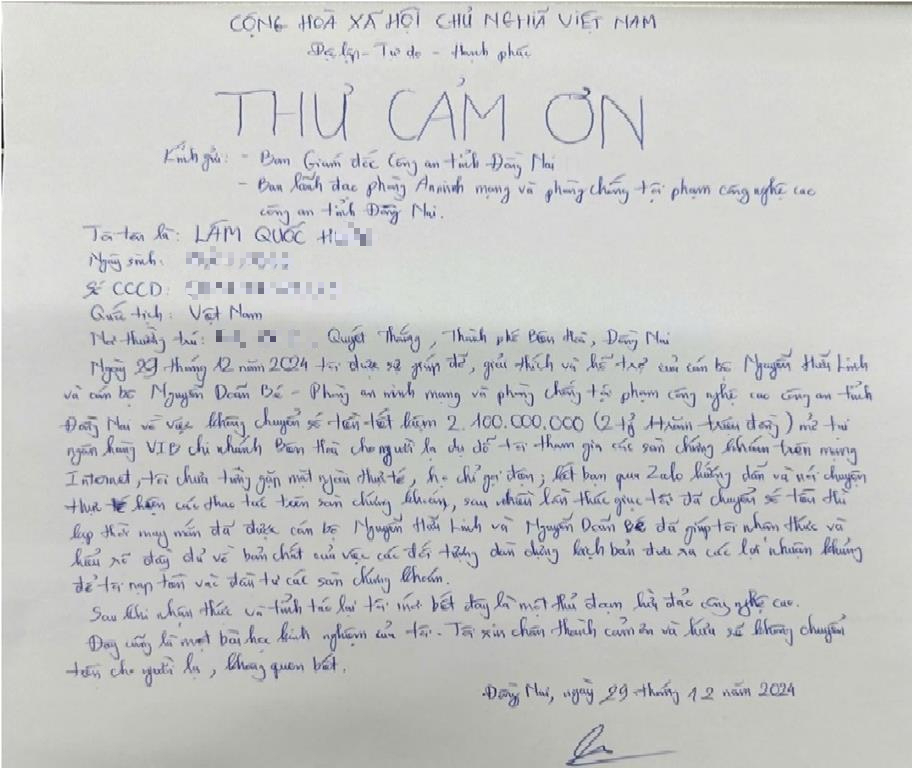 CỘNG HOÀ XÃ HỘI CHỦ NGHĨA VIỆT NAM
Độc lập - Tự do - Hạnh phúc
THƯ CẢM ƠN
Kính gửi: - Ban Giám đốc Công an tỉnh Đồng Nai
- Ban lãnh đạo phòng An ninh mạng và phòng chống tội phạm công nghệ cao
công an tỉnh Đồng Nai.
Tôi tên là: LÂM QUỐC
Ngày sinh:
Số CCCD:
Quốc tịch: Việt Nam
Nơi thường trú: Quyết Thắng, Thành phố Biên Hoà, Đồng Nai
Ngày 29 tháng 12 năm 2024 tôi được sự giúp đỡ, giải thích và hỗ trợ của cán bộ Nguyễn Hữu Linh
và cán bộ Nguyễn Doãn Bé - Phòng an ninh mạng và phòng chống tội phạm công nghệ cao công an tỉnh
Đồng Nai về việc không chuyển số tiền tiết kiệm 2.100.000.000 (2 tỷ 1 trăm triệu đồng) mở tại
ngân hàng VIB chi nhánh Biên Hoà cho người lạ dụ dỗ tôi tham gia các sàn chứng khoán trên mạng
Internet, tôi chưa từng gặp mặt ngoài thực tế, họ chỉ gọi điện; kết bạn qua Zalo hướng dẫn và nói chuyện
thực hiện các thao tác trên sàn chứng khoán, sau nhiều lần thúc giục tôi đã chuyển số tiền thì
kịp thời may mắn đã được cán bộ Nguyễn Hữu Linh và Nguyễn Doãn Bé đã giúp tôi nhận thức và
hiểu rõ đầy đủ về bản chất của việc các đối tượng dàn dựng kịch bản đưa ra các lợi nhuận khủng
để tôi nạp tiền vào đầu tư các sàn chứng khoán.
Sau khi nhận thức và tỉnh táo lại tôi mới biết đây là một thủ đoạn lừa đảo công nghệ cao.
Đây cũng là một bài học kinh nghiệm của tôi. Tôi xin chân thành cảm ơn và hứa sẽ không chuyển
tiền cho người lạ, không quen biết.
Đồng Nai, ngày 29 tháng 12 năm 2024